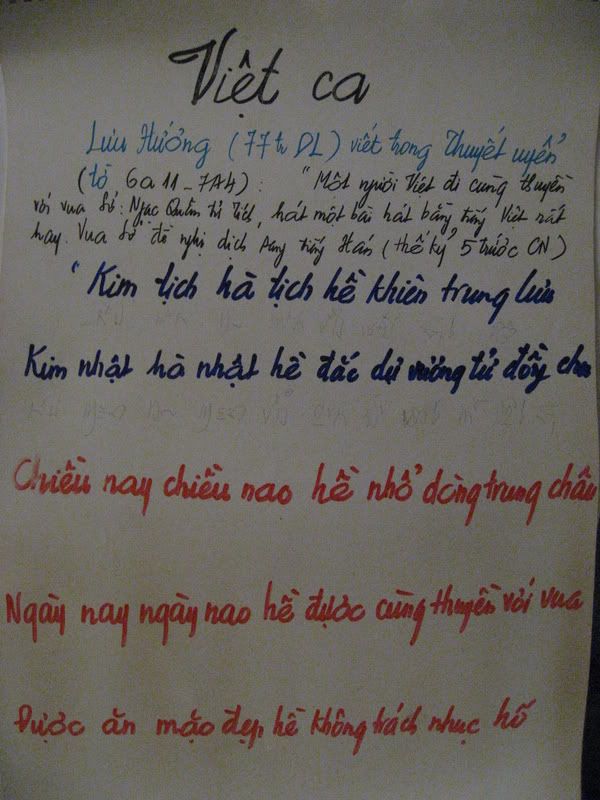 Việt ca
Lưu Hướng (77 tr DL) viết trong Thuyết uyển
(tờ 6a11-7A4): "Một người Việt đi cùng thuyền
với vua Sở: Ngạc Quân Tử Tích, hát một bài hát bằng tiếng Việt rất
hay. Vua Sở đề nghị dịch sang tiếng Hán (thế kỷ 5 trước CN)
"Kim tịch hà tịch hề khiên trung lưu
Kim nhật hà nhật hề đắc dự vương tử đồng chu
Chiều nay chiều nao hề nhổ dòng trung châu
Ngày nay ngày nao hề được cùng thuyền với vua
Được ăn mặc đẹp hề không trách nhục hố